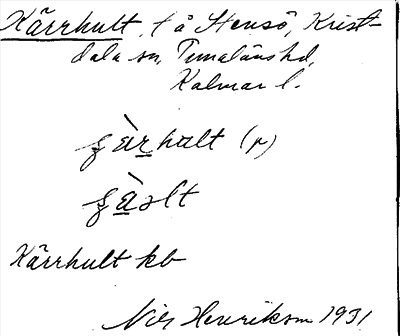 Kärrhult, t å Stensö, Krist-
dala sn, Tunaläns hd,
Kalmar l.
hult (r)
Kärrhult kb
Nils Henrikson 1931